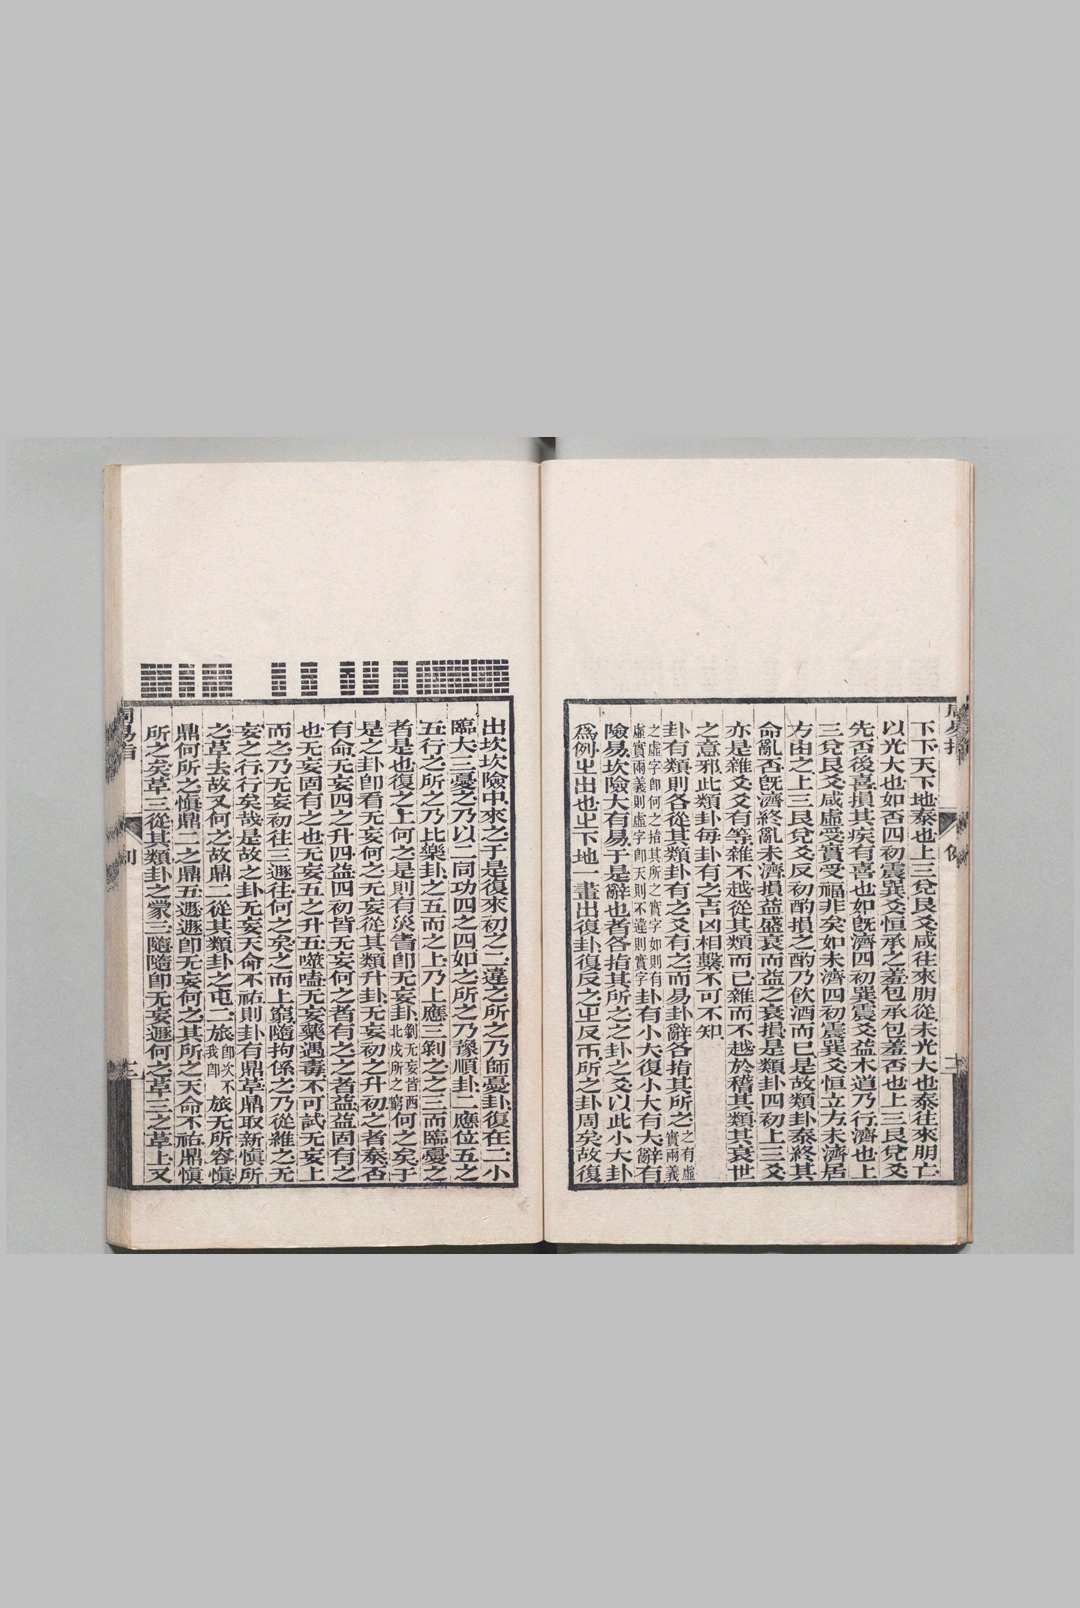 下下天下地泰也上三兌艮爻咸往來朋從未光大也泰往來朋亡
以光大也如否四初震巽爻恒承之羞包承包羞否也上三艮兌爻
先否後喜損其疾有喜也如旣濟四初巽震爻益木道乃行濟也上
三兌艮爻咸虛受實受福非矣如未濟四初震巽爻恒立方未濟居
方由之上三艮兌爻反初酌損之酌乃飲酒而已是故類卦泰終其
命亂否旣濟終亂未濟損益盛衰而益之衰損是類卦四初上三爻
亦是雜爻爻有等雜不越從其類而已雜而不越於稽其類其衰世
之意邪此類卦每卦有之吉凶相繫不可不知
卦有類則各從其類卦有之爻有之而易卦辭各指其所之之有虛實兩義
之虛字卽何之指其所之實字如則有虛實兩義則虛字卽天則不違則實字卦有小大復小大有大辭有
險易坎險大有易于是辭也者各指其所之之卦之爻以此小大卦
爲例㞢出也㞢下地一畫出復卦復反之㞢反帀所之卦周矣故復
周易指
例
出坎坎險中來之于是復來初之二違之所之乃師憂卦復在二小
臨大三憂之乃以二同功四之四如之所之乃豫順卦二應位五之
五行之所之乃比樂卦之五而之上乃上應三剝之之三而臨憂之
者是也復之上何之是則有災眚卽无妄卦剝无妄皆西北戌所之窮何之矣于
是之卦卽看无妄何之无妄從其類升卦无妄初之升初之者泰否
有命无妄四之升四益四初皆无妄何之者有之之者益益固有之
也无妄固有之也无妄五之升五噬嗑无妄藥遇毒不可試无妄上
而之乃无妄初往三遯往何之矣之而上窮隨拘係之乃從維之无
妄之行行矣哉是故之卦无妄天命不祐則卦有鼎革鼎取新愼所
之革去故又何之故鼎二從其類卦之屯二旅卽次不我卽旅无所容愼
鼎何所之愼鼎二之鼎五遯遯卽无妄何之其所之天命不祐鼎愼
所之矣革三從其類卦之蒙三隨隨卽无妄遯何之革三之革上又
周易指
例